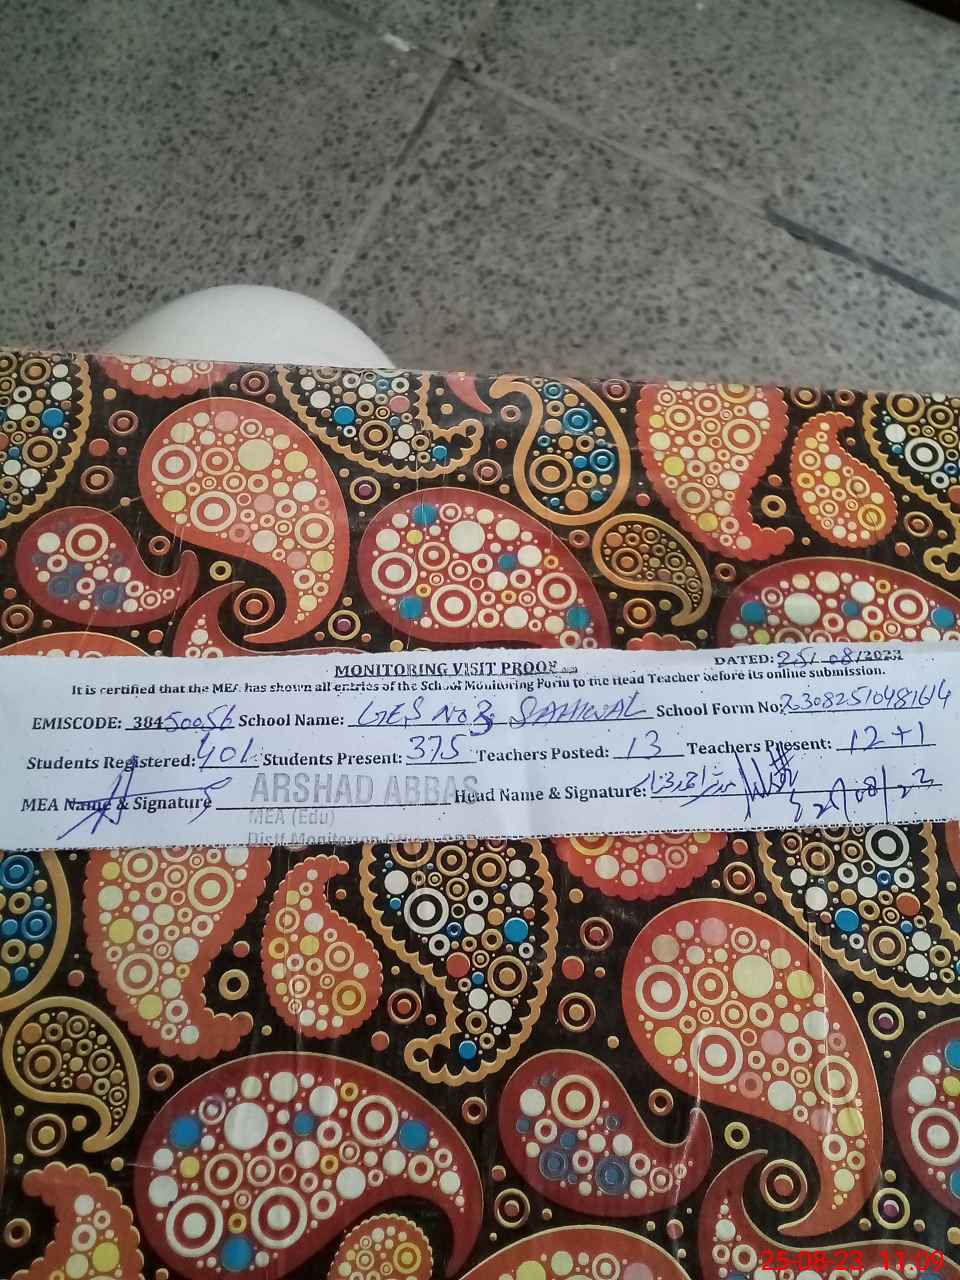 MONITORING VISIT PROOF
DATED: 25/-08/2023
It is certified that the MEA has shown all entries of the School Monitoring Form to the Head Teacher before its online submission.
EMISCODE: 38450056 School Name: GES No 3 SAHIWAL School Form No: 23082510481614
Students Registered: 401 Students Present: 375 Teachers Posted: 13 Teachers Present: 12+1
MEA Name & Signature ARSHAD ABBAS Head Name & Signature:
MEA (Edu)
25/08/23
25-08-23 11:09